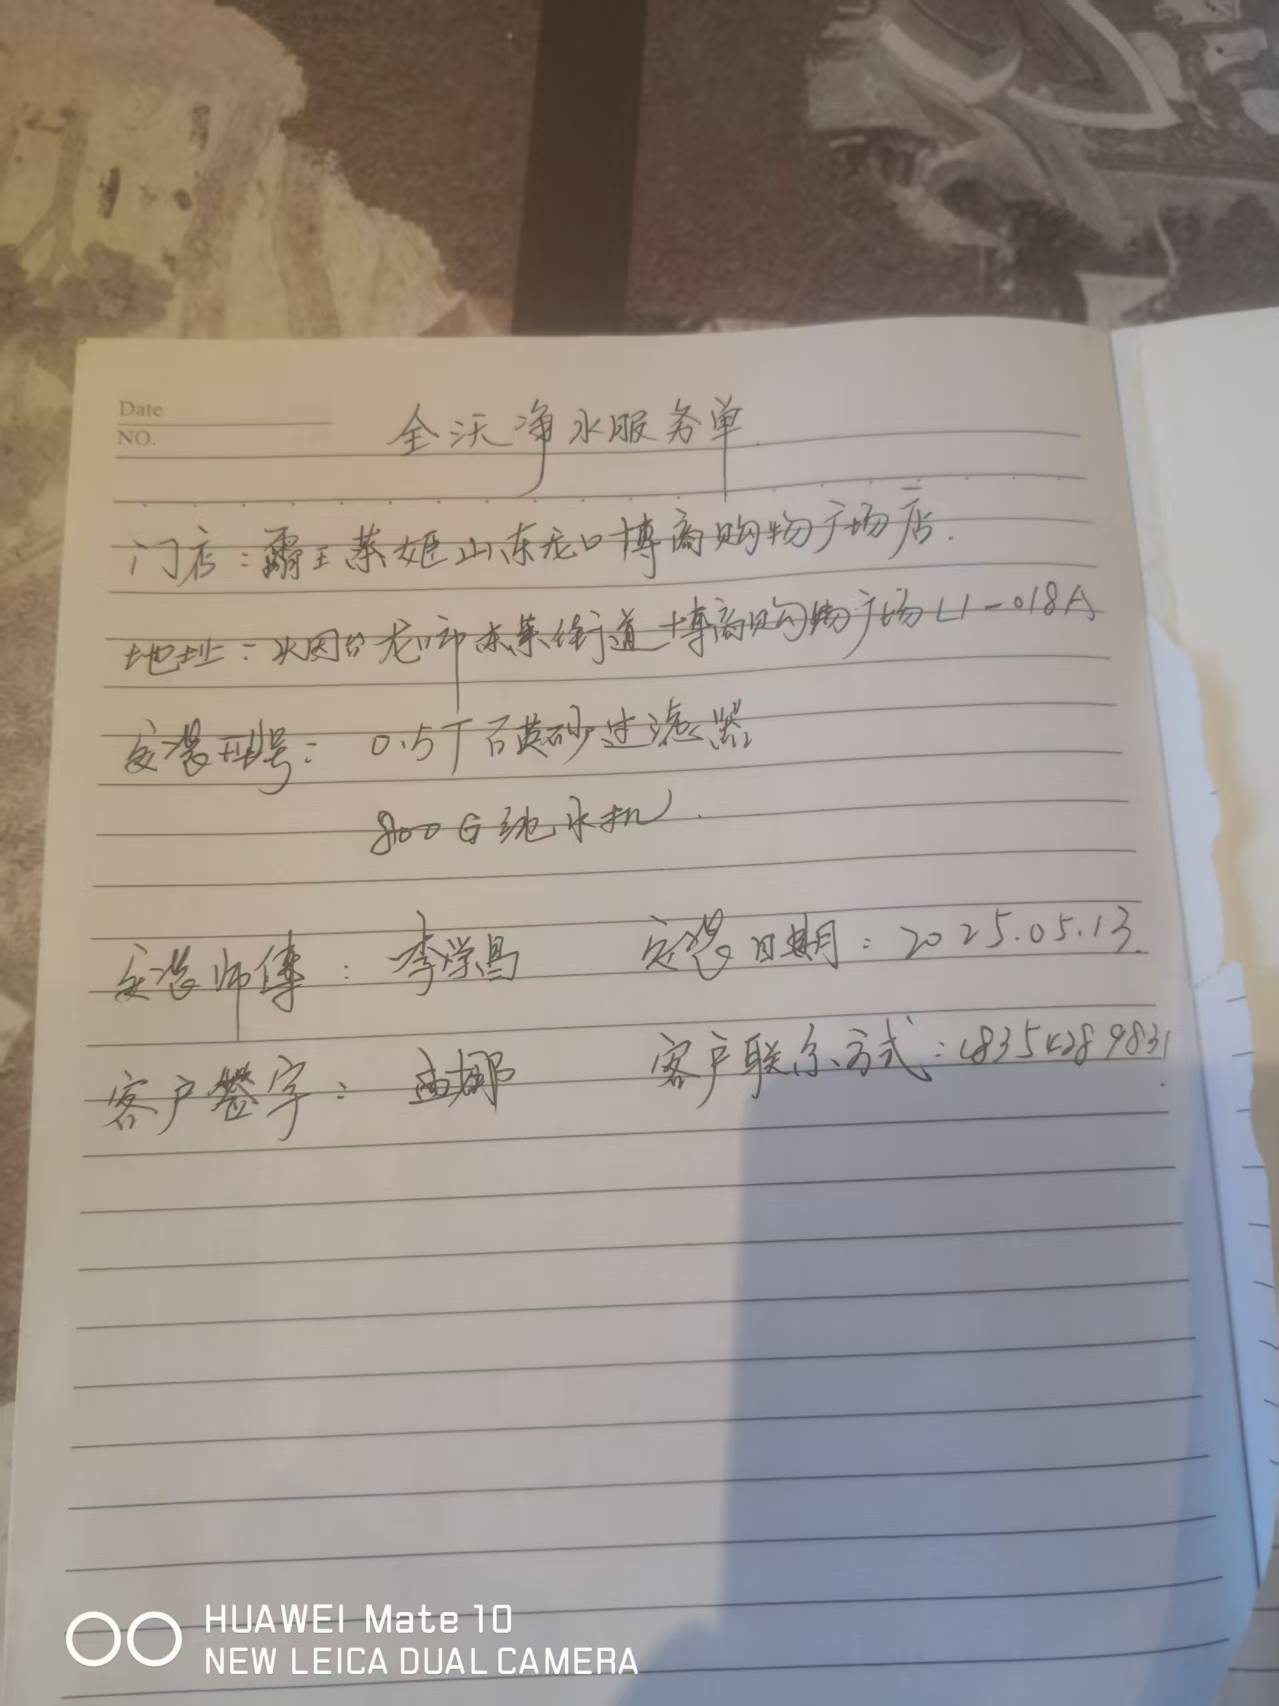 Date
NO.
全沃净水服务单
门店：霸王茶姬山东龙口博商购物广场店.
地址：烟台龙口市东莱街道博商购物广场L1-018A
安装型号： 0.5T石英砂过滤器
800G纯水机.
安装师傅：李学昌 安装日期：2025.05.13.
客户签字： 客户联系方式：18354289831
HUAWEI Mate 10
NEW LEICA DUAL CAMERA